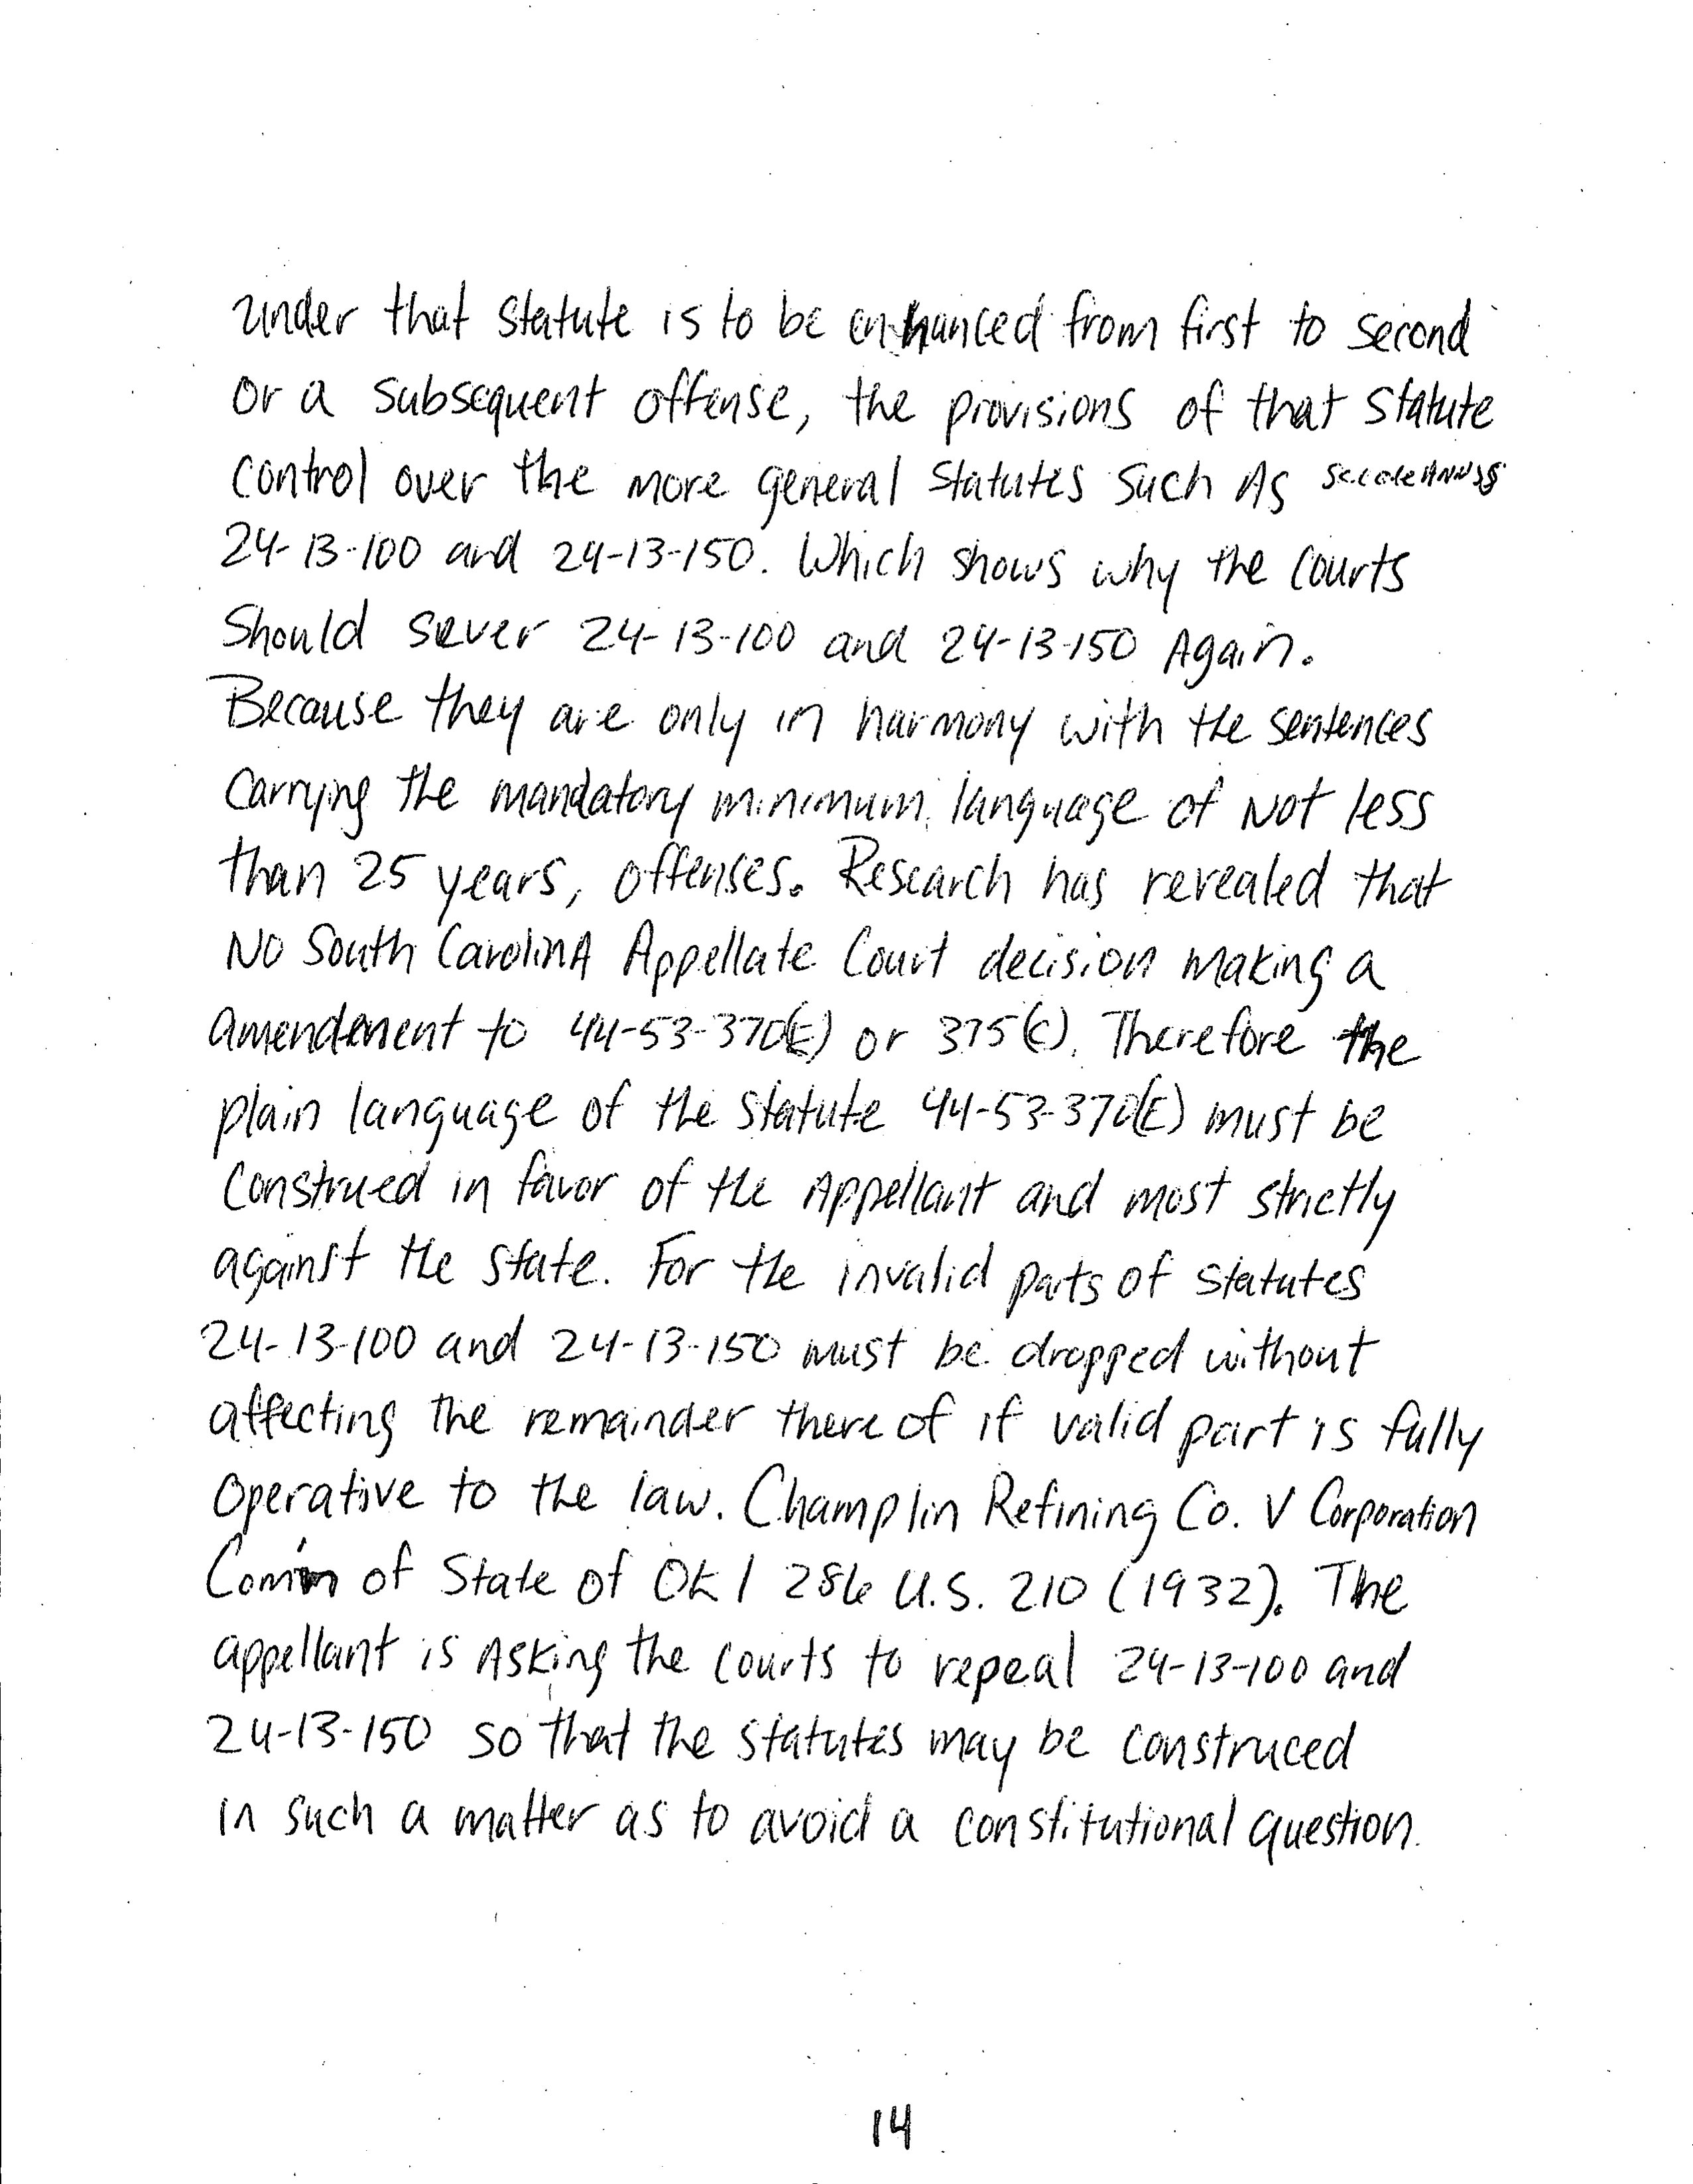 under that statute is to be enhanced from first to second
or a subsequent offense, the provisions of that statute
control over the more general statutes such As S.C. Code Ann §§
24-13-100 and 24-13-150. Which shows why the courts
Should sever 24-13-100 and 24-13-150 Again.
Because they are only in harmony with the sentences
carrying the mandatory minimum language of Not less
than 25 years, offenses. Research has revealed that
No South Carolina Appellate Court decision making a
amendment to 44-53-370(E) or 375(C). Therefore the
plain language of the statute 44-53-370(E) must be
construed in favor of the Appellant and most strictly
against the state. For the invalid parts of statutes
24-13-100 and 24-13-150 must be dropped without
affecting the remainder there of if valid part is fully
operative to the law. Champlin Refining Co. V Corporation
Comm of State of Okl 286 U.S. 210 (1932). The
appellant is Asking the courts to repeal 24-13-100 and
24-13-150 so that the statutes may be construced
in such a matter as to avoid a constitutional question.
14